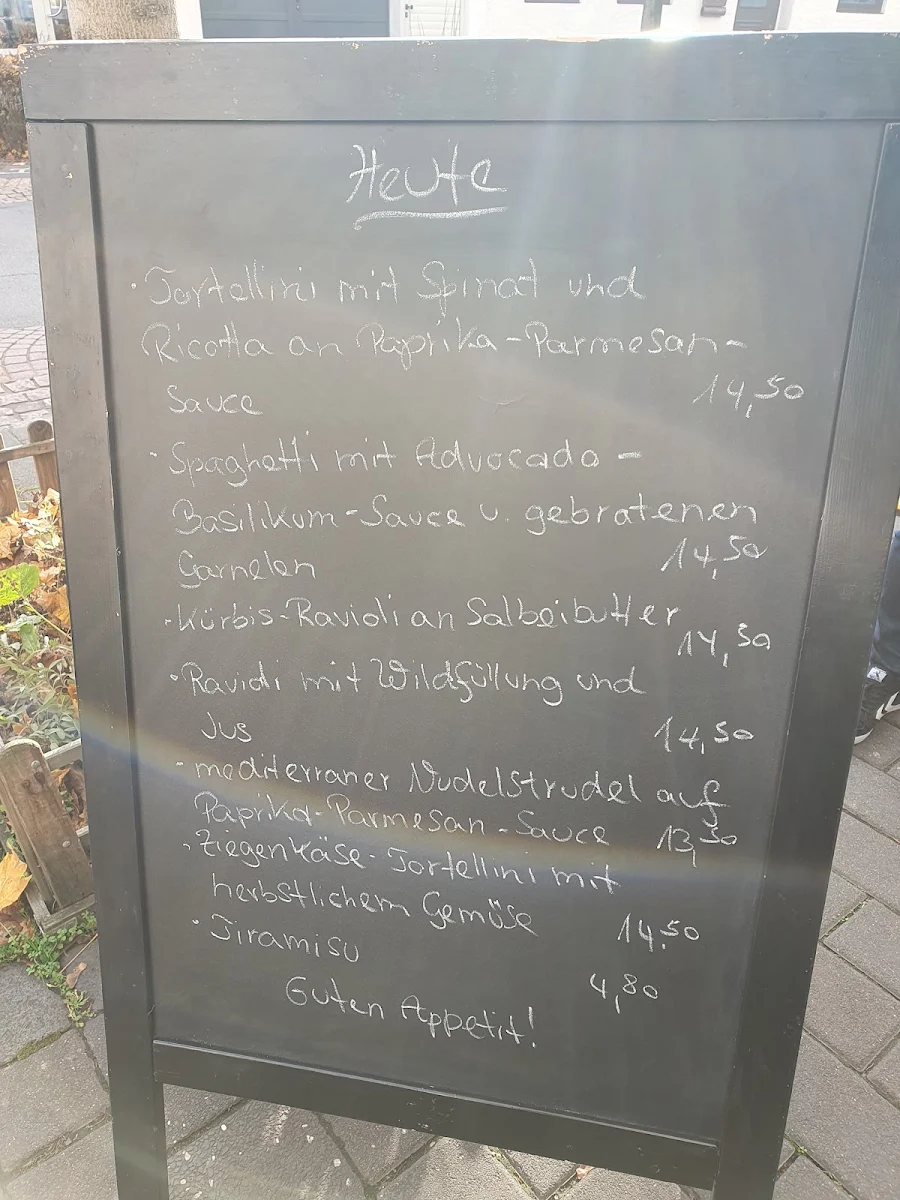 Heute
· Tortellini mit Spinat und
Ricotta an Paprika-Parmesan-
Sauce 14,50
· Spaghetti mit Advocado-
Basilikum-Sauce u. gebratenen
Garnelen 14,50
· Kürbis-Ravioli an Salbeibutter
14,50
· Ravioli mit Wildfüllung und
Jus 14,50
· mediterraner Nudelstrudel auf
Paprika-Parmesan-Sauce 13,50
· Ziegenkäse-Tortellini mit
herbstlichem Gemüse 14.50
· Tiramisu 4,80
Guten Appetit!